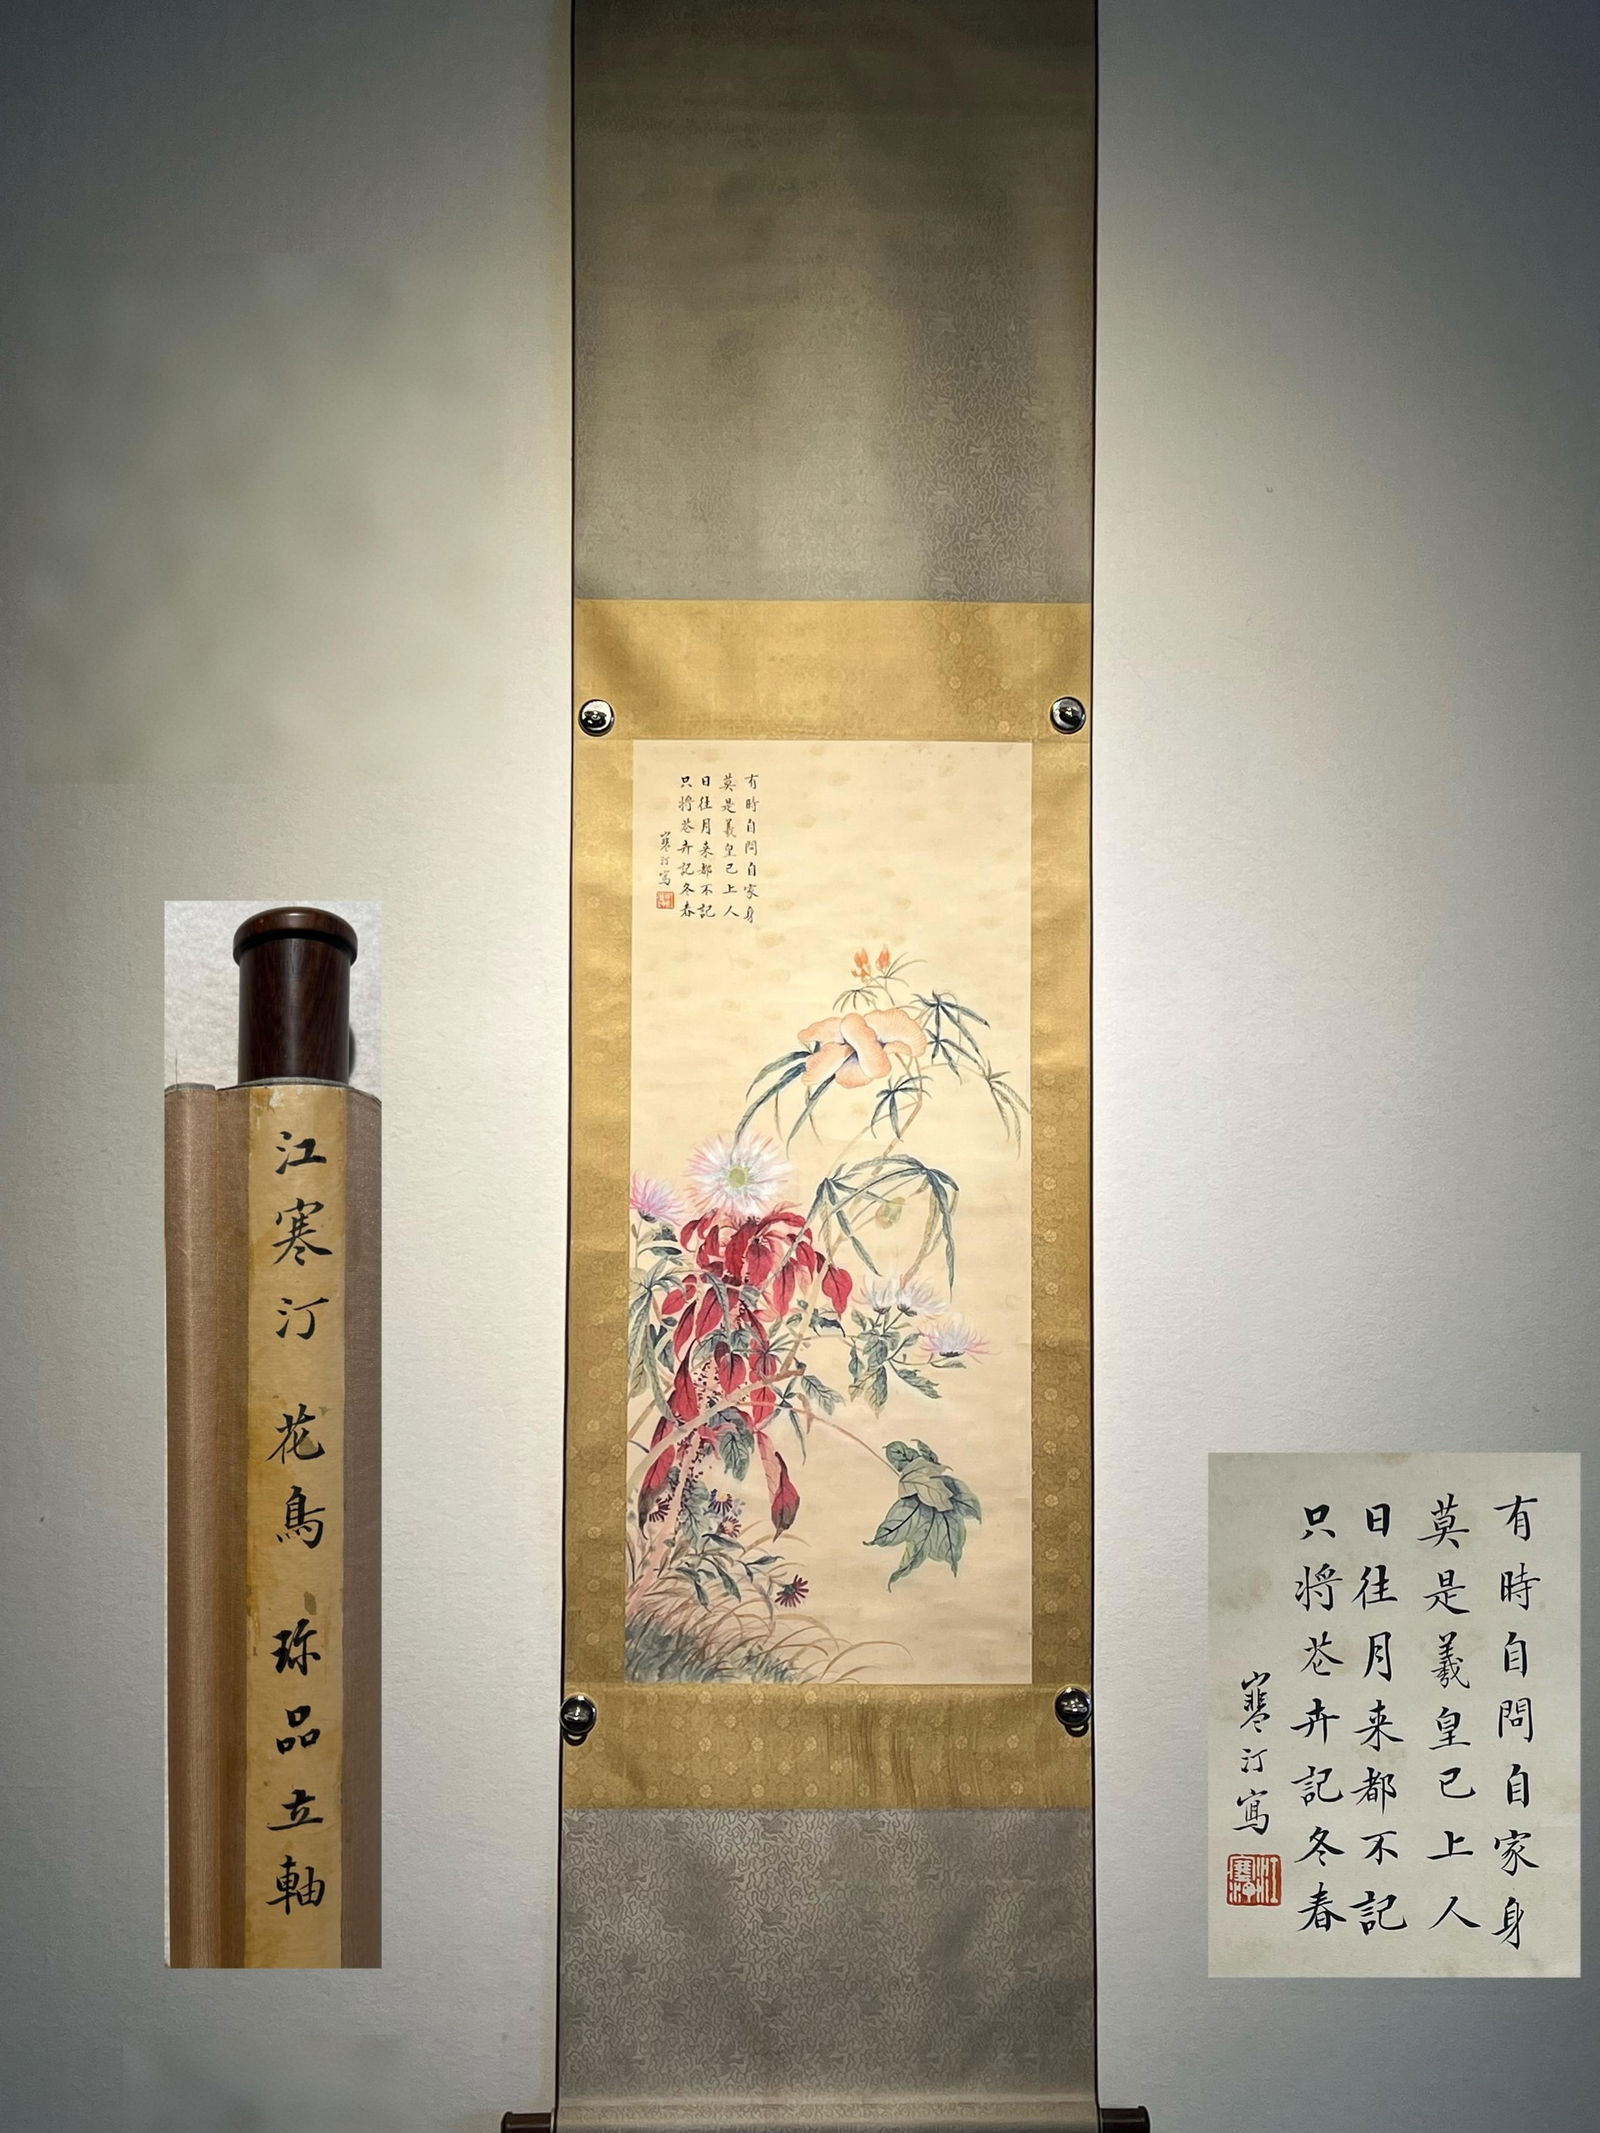 有時自問自家身
莫是羲皇已上人
日往月来都不記
只將花卉記冬春
寒汀寫
江寒汀 花鳥 珎品立軸
有時自問自家身
莫是羲皇已上人
日往月来都不記
只將花卉記冬春
寒汀寫
江寒汀